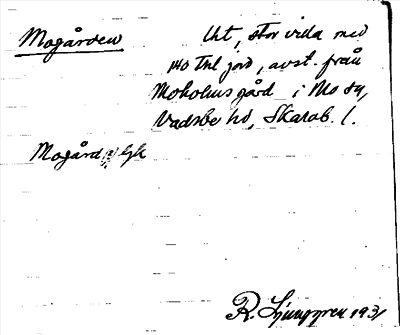 Mogården
Uht, stor villa med
140 tnl jord, avst. från
Moholms gård i Mo sn,
Vadsbo hd, Skarab. l.
Mogård
R. Ljunggren 1931